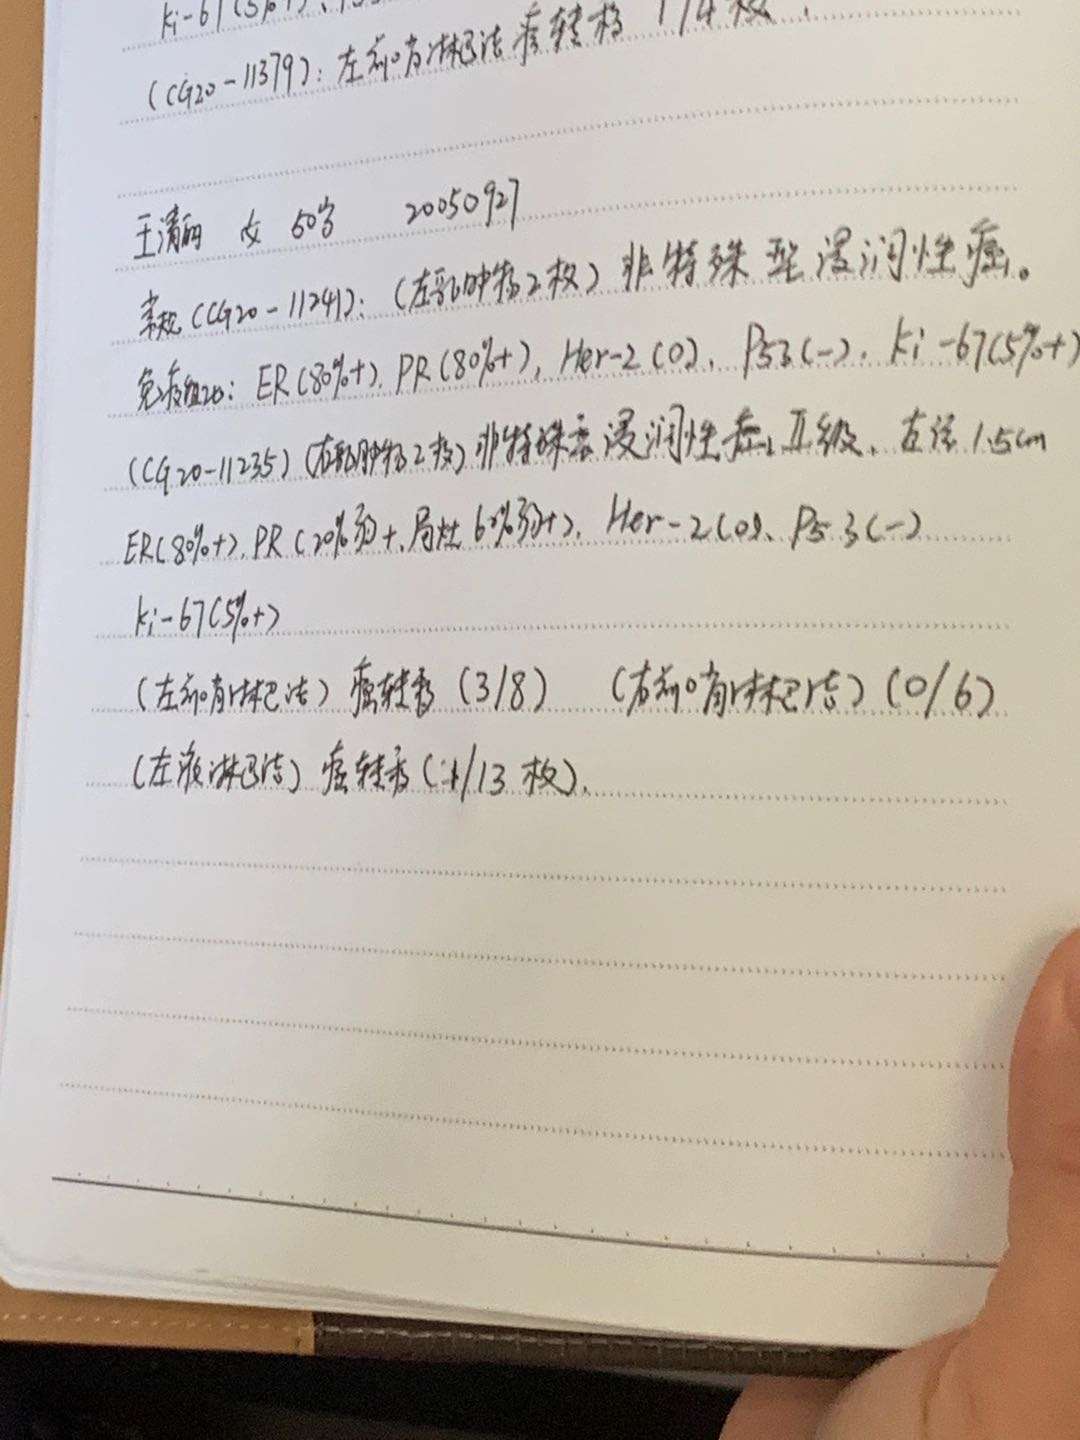 Ki-67(5%+)
(CG20-11379): 左前哨淋巴结癌转移 1/4枚.
王清 女 50岁 20050927
常规(CG20-11241): (左乳肿物2枚) 非特殊型浸润性癌。
免疫组化: ER(80%+). PR(80%+), Her-2(0). P53(-). Ki-67(5%+)
(CG20-11235) (右乳肿物2枚) 非特殊型浸润性癌, Ⅱ级. 直径1.5cm
ER(80%+). PR(20%弱+.局灶60%弱+). Her-2(0). P53(-)
Ki-67(5%+)
(左前哨淋巴结) 癌转移 (3/8) (右前哨淋巴结) (0/6)
(左腋淋巴结) 癌转移 (1/13枚).